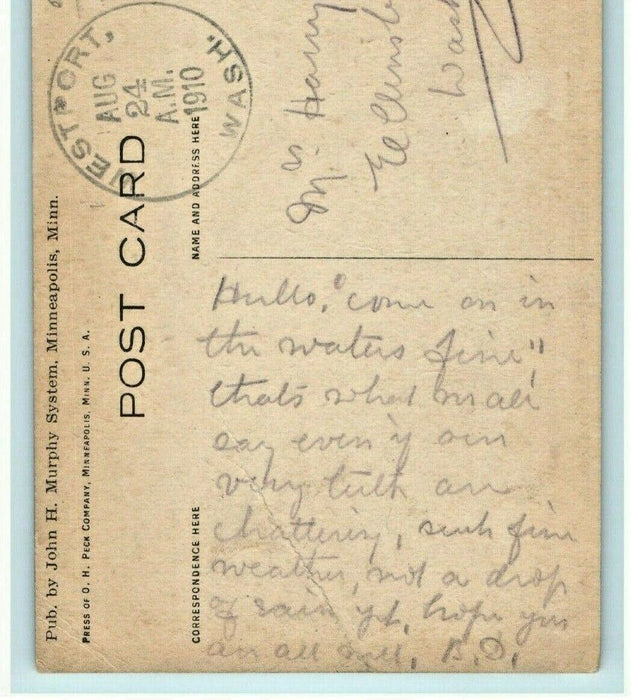 WESTPORT, WASH.
AUG
24
A.M.
1910
POST CARD
Pub. by John H. Murphy System, Minneapolis, Minn.
PRESS OF O. H. PECK COMPANY, MINNEAPOLIS, MINN. U. S. A.
NAME AND ADDRESS HERE
Mrs. Harry
Ellensb
Wash
CORRESPONDENCE HERE
Hullo, "come on in
the waters fine"
thats what we all
say even if our
very teeth are
chattering, such fine
weather, not a drop
of rain yet, hope you
are all well, B.D.